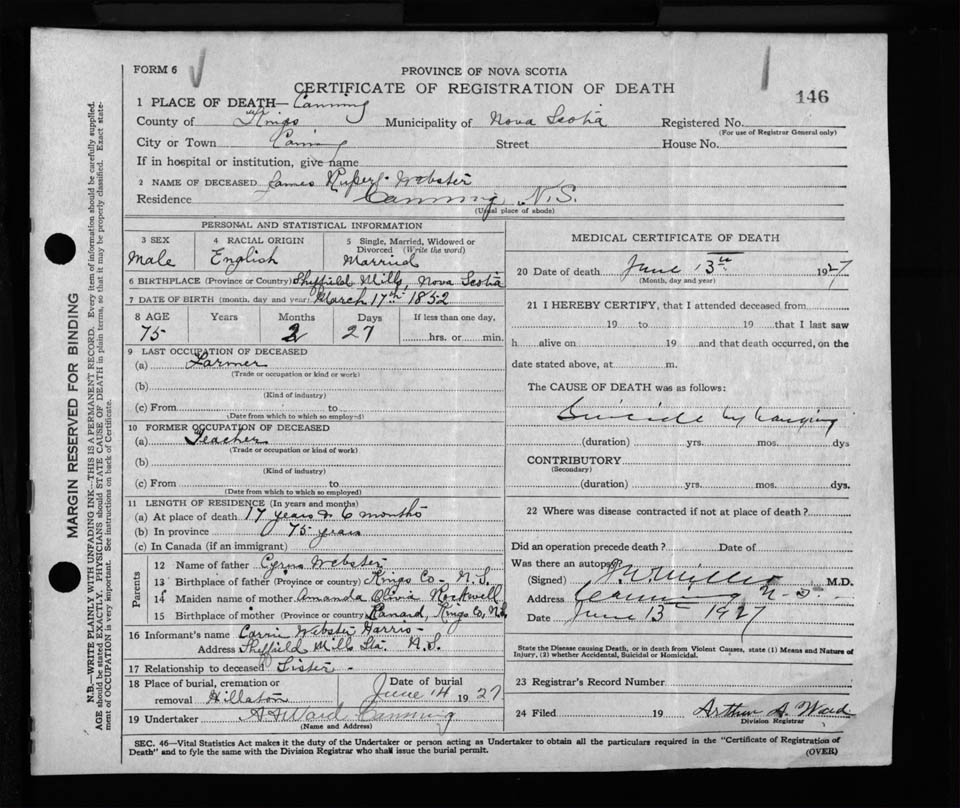 FORM 6
PROVINCE OF NOVA SCOTIA
CERTIFICATE OF REGISTRATION OF DEATH
146
1 PLACE OF DEATH— Canning
County of Kings Municipality of Nova Scotia Registered No.
(For use of Registrar General only)
City or Town Canning Street House No.
If in hospital or institution, give name
2 NAME OF DECEASED James Rupert Webster
Residence Canning N.S.
(Usual place of abode)
PERSONAL AND STATISTICAL INFORMATION
3 SEX 4 RACIAL ORIGIN 5 Single, Married, Widowed or Divorced (Write the word)
Male English Married
6 BIRTHPLACE (Province or Country) Sheffield Mills, Nova Scotia
7 DATE OF BIRTH (month, day and year) March 17th 1852
8 AGE Years Months Days If less than one day,
75 2 27 hrs. or min.
9 LAST OCCUPATION OF DECEASED
(a) Farmer
(Trade or occupation or kind or work)
(b)
(Kind of industry)
(c) From to
(Date from which to which so employed)
10 FORMER OCCUPATION OF DECEASED
(a) Teacher
(Trade or occupation or kind of work)
(b)
(Kind of industry)
(c) From to
(Date from which to which so employed)
11 LENGTH OF RESIDENCE (In years and months)
(a) At place of death 17 years & 6 months
(b) In province 75 years
(c) In Canada (if an immigrant)
Parents
12 Name of father Cyrus Webster
13 Birthplace of father (Province or country) Kings Co - N.S.
14 Maiden name of mother Amanda Olivia Rockwell
15 Birthplace of mother (Province or country) Canard, Kings Co, N.S.
16 Informant's name Carrie Webster Harris -
Address Sheffield Mills Sta. N.S.
17 Relationship to deceased Sister -
18 Place of burial, cremation or removal Hillaton Date of burial June 14 1927
19 Undertaker A A Ward Canning
(Name and Address)
MEDICAL CERTIFICATE OF DEATH
20 Date of death June 13th 1927
(Month, day and year)
21 I HEREBY CERTIFY, that I attended deceased from
19 to 19 that I last saw
h alive on 19 and that death occurred, on the
date stated above, at m.
The CAUSE OF DEATH was as follows:
Suicide by hanging
(duration) yrs. mos. dys
CONTRIBUTORY
(Secondary)
(duration) yrs. mos. dys.
22 Where was disease contracted if not at place of death?
Did an operation precede death? Date of
Was there an autopsy
(Signed) M.D.
Address Canning N.S.
Date June 13 1927
State the Disease causing Death, or in death from Violent Causes, state (1) Means and Nature of
Injury, (2) whether Accidental, Suicidal or Homicidal.
23 Registrar's Record Number
24 Filed 19 Arthur A. Ward
Division Registrar
SEC. 46—Vital Statistics Act makes it the duty of the Undertaker or person acting as Undertaker to obtain all the particulars required in the "Certificate of Registration of
Death" and to fyle the same with the Division Registrar who shall issue the burial permit. (OVER)
MARGIN RESERVED FOR BINDING
N.B.—WRITE PLAINLY WITH UNFADING INK—THIS IS A PERMANENT RECORD. Every item of information should be carefully supplied.
AGE should be stated EXACTLY. PHYSICIANS should STATE CAUSE OF DEATH in plain terms, so that it may be properly classified. Exact state-
ment of OCCUPATION is very important. See instructions on back of Certificate.